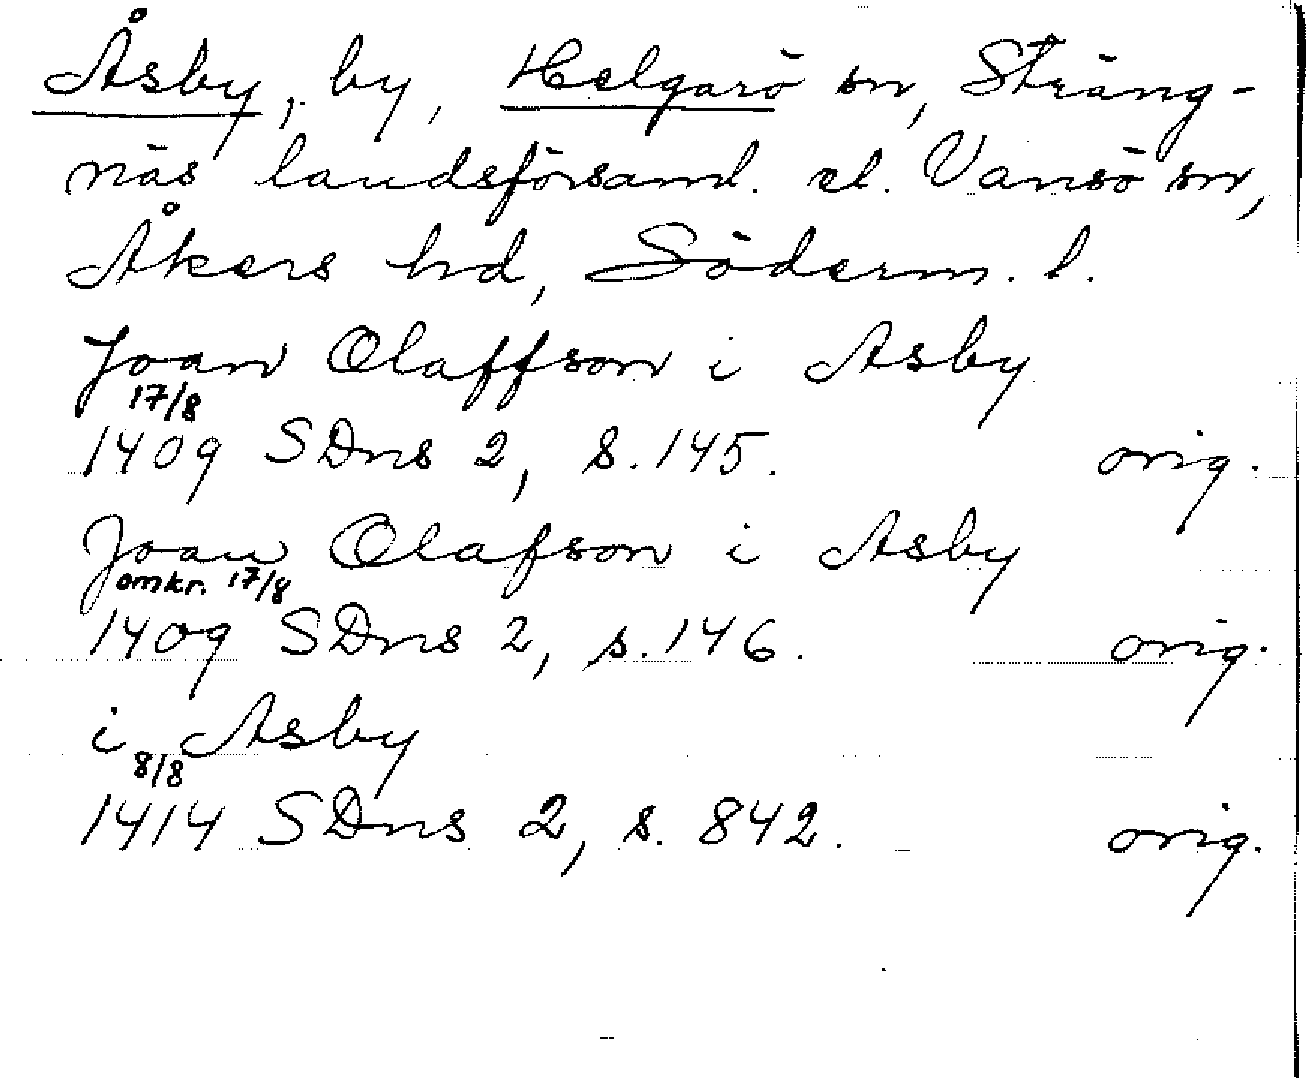 Åsby, by, Helgarö sn, Sträng-
näs landsförsaml. el. Vansö sn,
Åkers hd, Söderm. l.
Joan Olaffson i Asby
17/8
1409 SDns 2, s. 145. orig.
Joan Olafson i Asby
omkr. 17/8
1409 SDns 2, s. 146. orig.
i Asby
8/8
1414 SDns 2, s. 842. orig.